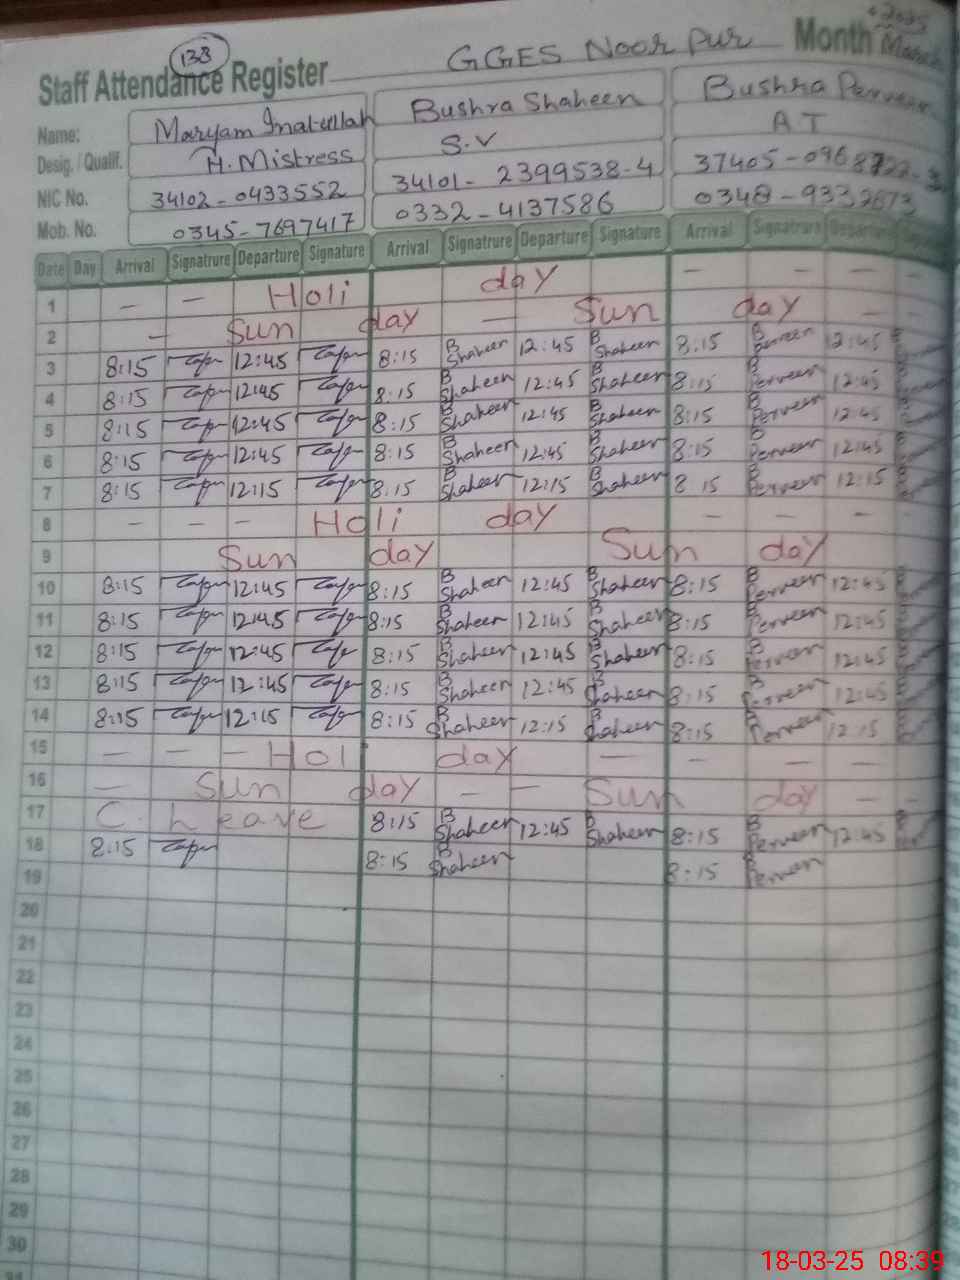 138
2025
Staff Attendance Register GGES Noor Pur Month March
Name: Maryam Inatullah Bushra Shaheen Bushra Perveen
Desig. / Qualif. H. Mistress S.V AT
NIC No. 34102-0433552 34101-2399538-4 37405-0968722-
Mob. No. 0345-7697417 0332-4137586 0348-9332673
Date Day Arrival Signatrure Departure Signature Arrival Signatrure Departure Signature Arrival Signatrure Departure
1 — — Holi day — — — —
2 — Sun day — Sun day — —
3 8:15 12:45 8:15 B Shaheen 12:45 B Shaheen 8:15 B Perveen 12:45
4 8:15 12:45 8:15 B Shaheen 12:45 B Shaheen 8:15 B Perveen 12:45
5 8:15 12:45 8:15 B Shaheen 12:45 B Shaheen 8:15 B Perveen 12:45
6 8:15 12:45 8:15 B Shaheen 12:45 B Shaheen 8:15 B Perveen 12:45
7 8:15 12:15 8:15 B Shaheen 12:15 B Shaheen 8 15 B Perveen 12:15
8 — — — Holi day — — — —
9 Sun day Sun day
10 8:15 12:45 8:15 B Shaheen 12:45 B Shaheen 8:15 B Perveen 12:45
11 8:15 12:45 8:15 B Shaheen 12:45 B Shaheen 8:15 B Perveen 12:45
12 8:15 12:45 8:15 B Shaheen 12:45 B Shaheen 8:15 B Perveen 12:45
13 8:15 12:45 8:15 B Shaheen 12:45 B Shaheen 8:15 B Perveen 12:45
14 8:15 12:15 8:15 B Shaheen 12:15 B Shaheen 8:15 B Perveen 12:15
15 — — — Holi day — — — —
16 — Sun day — — Sun day — —
17 C. Leave 8:15 B Shaheen 12:45 B Shaheen 8:15 B Perveen 12:45
18 8:15 8:15 B Shaheen 8:15 B Perveen
19
20
21
22
23
24
25
26
27
28
29
30
31
18-03-25 08:39